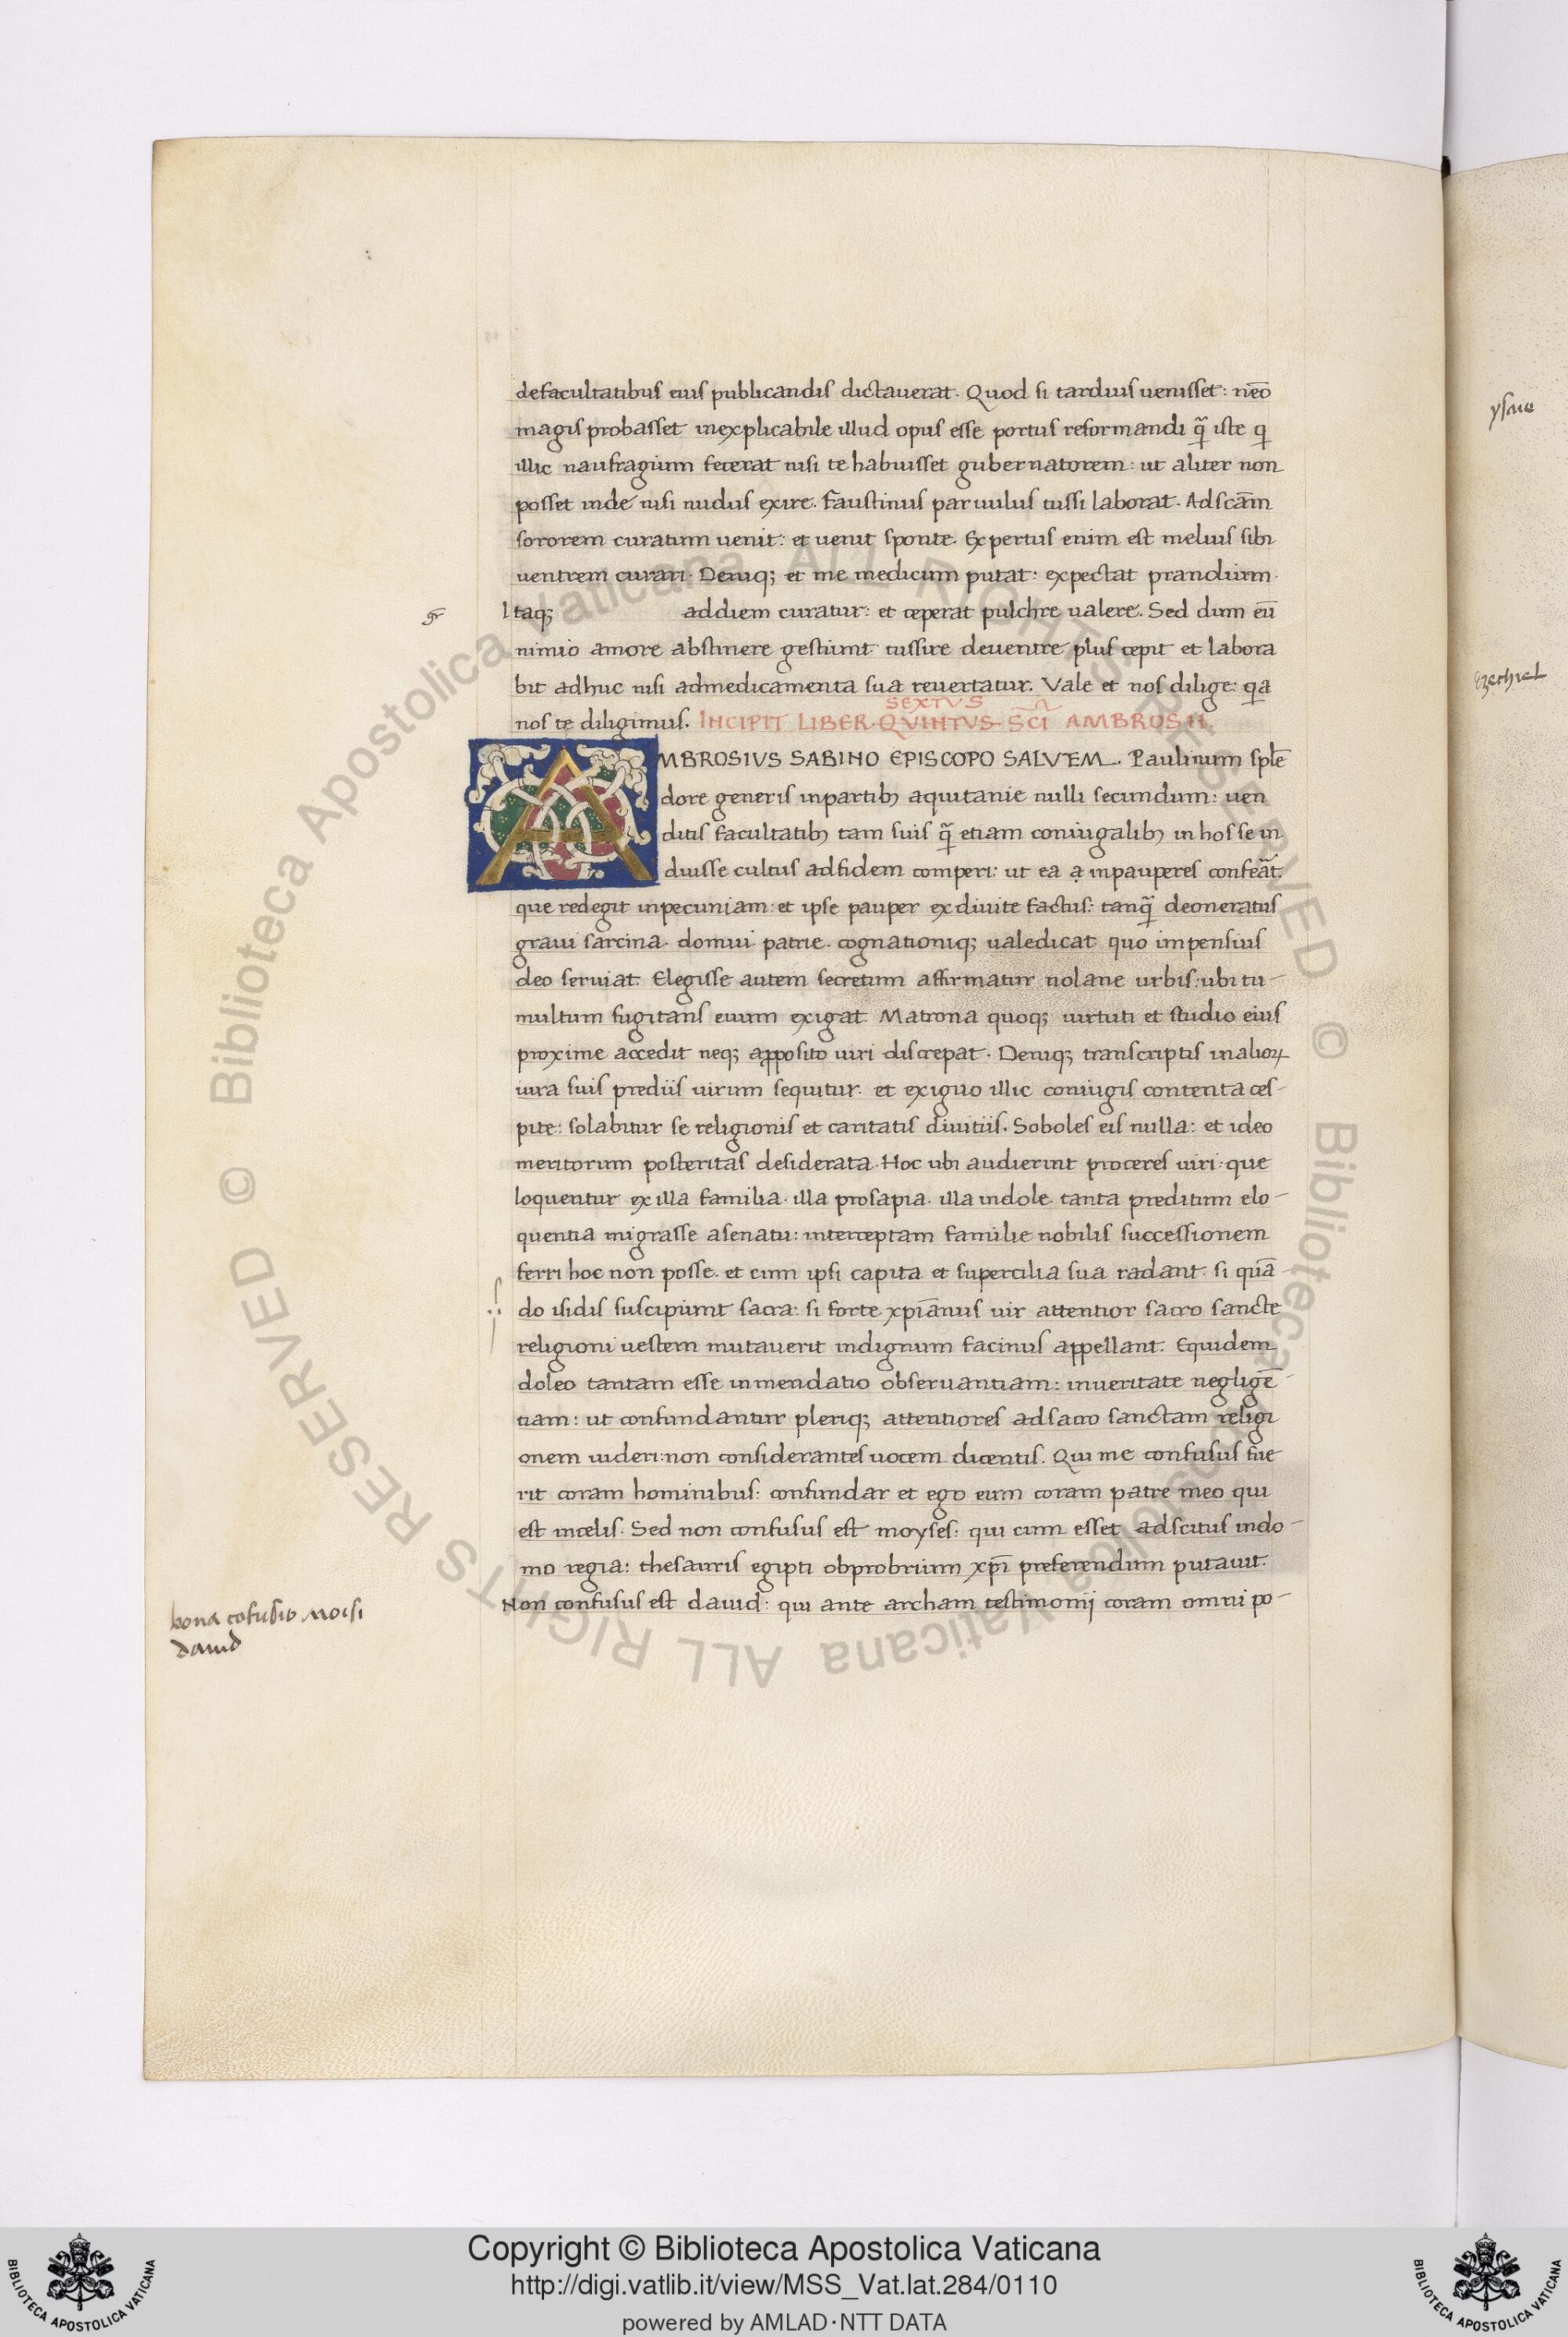 defacultatibus eius publicandis dictauerat. Quod si tardius uenisset: neō
magis probasset inexplicabile illud opus esse portus reformandi q̄ iste q
illic naufragium fecerat nisi te habuisset gubernatorem: ut aliter non
posset inde nisi nudus exire. Faustinus paruulus tussi laborat. Adscām
sororem curatum uenit: et uenit sponte. Expertus enim est melius sibi
uentrem curari. Deniq; et me medicum putat: expectat prandium.
gr̄
Itaq; addiem curatur: et ceperat pulchre ualere. Sed dum eū
nimio amore abstinere gestiunt tussire deuentre plus cepit et labora
bit adhuc nisi admedicamenta sua reuertatur. Vale et nos dilige: qa
SEXTVS
nos te diligimus. INCIPIT LIBER QVINTVS SCI AMBROSII.
AMBROSIVS SABINO EPISCOPO SALVTEM. Paulinum splē
dore generis inpartib; aquitanie nulli secundum: uen
ditis facultatib; tam suis q̄ etiam coniugalib; in hos se in
duisse cultus adfidem comperi: ut ea inpauperes conferāt.
que redegit inpecuniam: et ipse pauper ex diuite factus: tanq̄ deoneratus
graui sarcina. domui patrie. cognationiq; ualedicat quo impensius
deo seruiat. Elegisse autem secretum affirmatur nolane urbis: ubi tu-
multum fugitans euum exigat. Matrona quoq; uirtuti et studio eius
proxime accedit neq; apposito uiri discrepat. Deniq; transcriptis inalioꝝ
iura suis prediis uirum sequitur. et exiguo illic coniugis contenta ces-
pite: solabitur se religionis et caritatis diuitiis. Soboles eis nulla: et ideo
meritorum posteritas desiderata. Hoc ubi audierint proceres uiri: que
loquentur ex illa familia. illa prosapia. illa indole. tanta preditum elo-
quentia migrasse asenatu: interceptam familie nobilis successionem
ferri hoc non posse. et cum ipsi capita et supercilia sua radant. si quā-
do isidis suscipiunt sacra: si forte xp̄ianus uir attentior sacro sancte
religioni uestem mutauerit indignum facinus appellant. Equidem
doleo tantam esse inmendatio obseruantiam: inueritate negligē-
tiam: ut confundantur pleriq; attentiores adsacro sanctam religi
onem uideri: non considerantes uocem dicentis. Qui me confusus fue
rit coram hominibus: confundar et ego eum coram patre meo qui
est incelis. Sed non confusus est moyses: qui cum esset adscitus indo-
mo regia: thesauris egipti obprobrium xp̄i preferendum putauit.
Non confusus est dauid: qui ante archam testimonij coram omni po-
bona cōfusio Moisi
dauid
ysaie
Ezechiel
© Biblioteca Apostolica Vaticana ALL RIGHTS RESERVED © Biblioteca Apostolica Vaticana ALL RIGHTS RESERVED
Copyright © Biblioteca Apostolica Vaticana
http://digi.vatlib.it/view/MSS_Vat.lat.284/0110
powered by AMLAD·NTT DATA
BIBLIOTECA APOSTOLICA VATICANA
BIBLIOTECA APOSTOLICA VATICANA